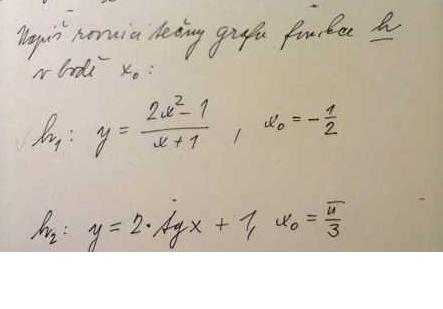 Napiš rovnici tečny grafu funkce h
v bodě x₀:
h₁: y = (2x² - 1)/(x + 1) , x₀ = -1/2
h₂: y = 2 · tg x + 1, x₀ = π/3